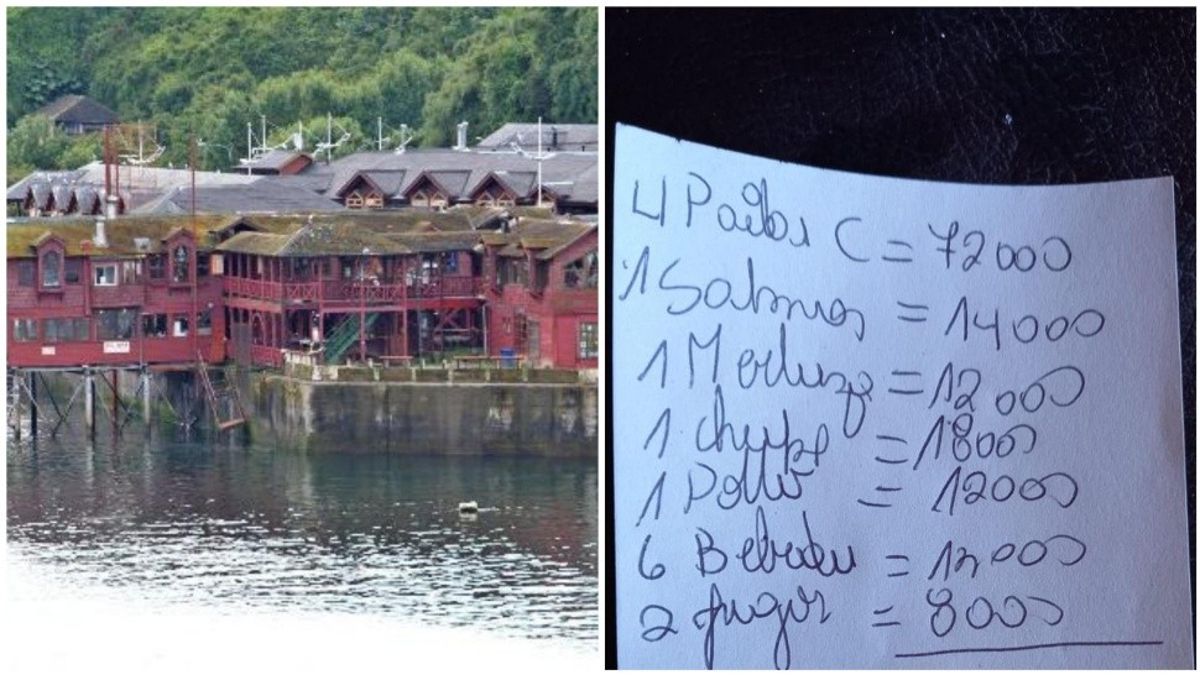 4 Pailas C = 72000
1 Salmon = 14000
1 Merluza = 12000
1 chupe = 18000
1 Pollo = 12000
6 Bebidas = 12000
2 jugos = 8000